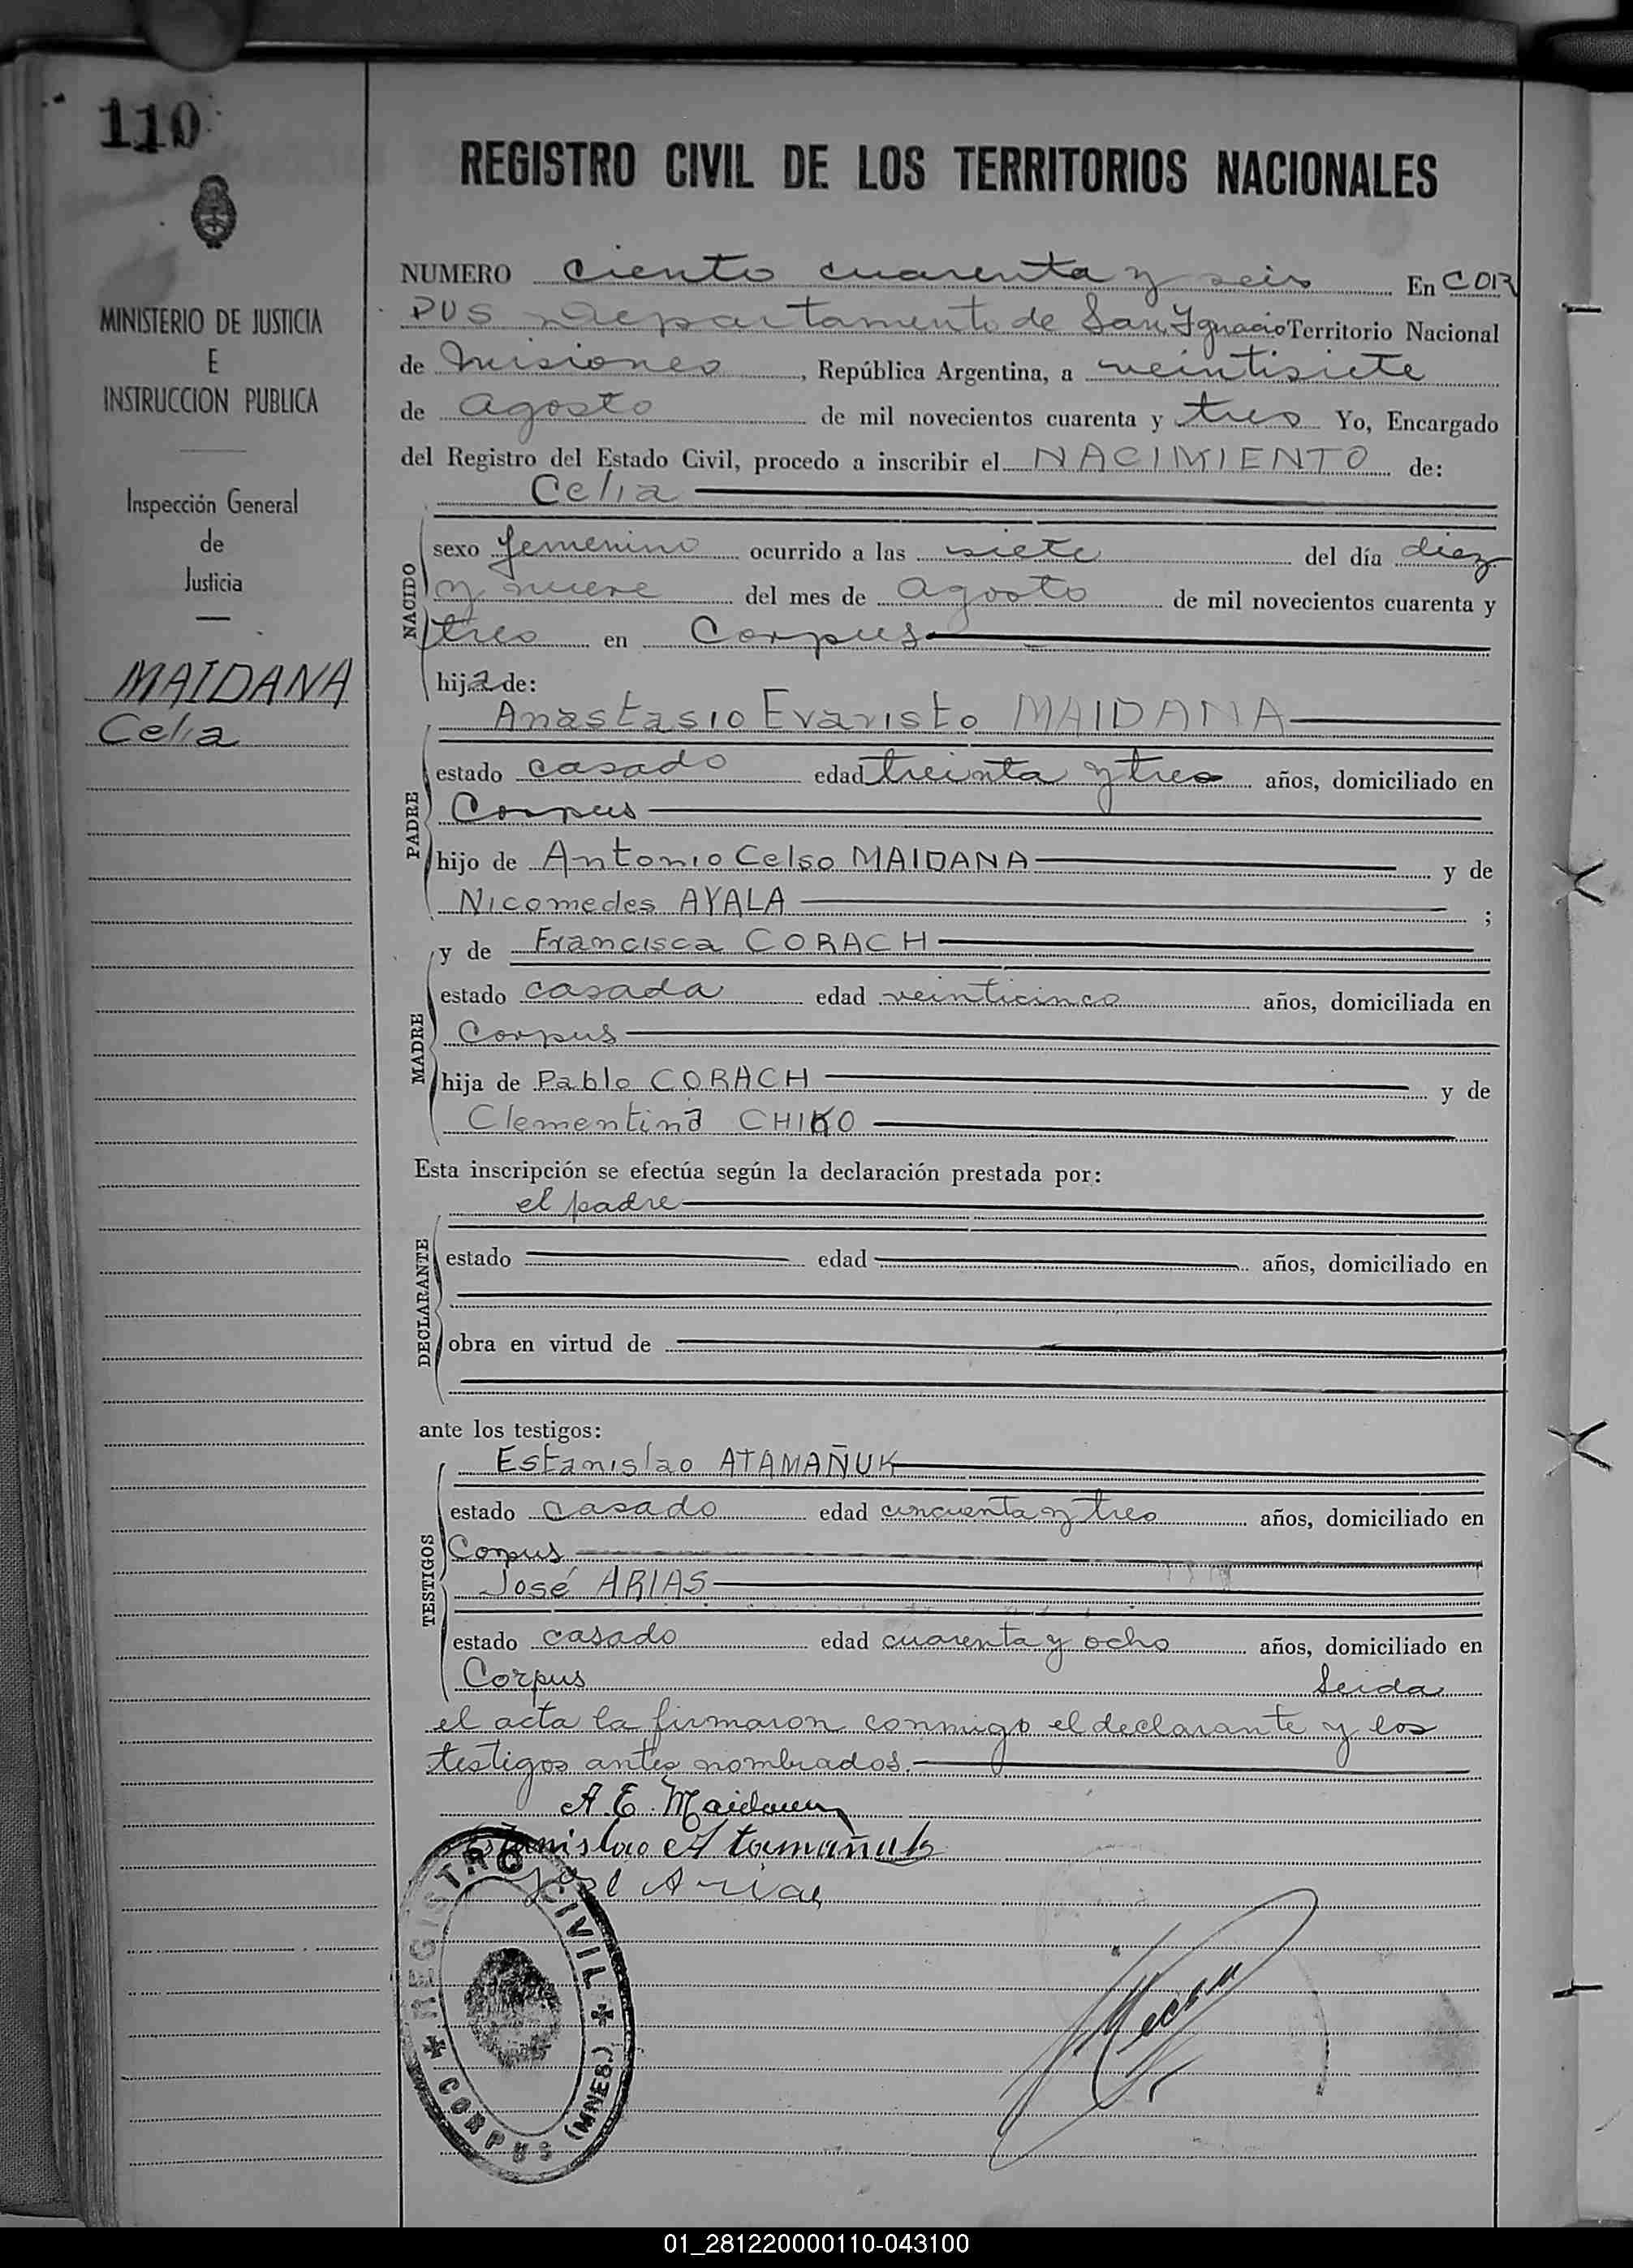 110
MINISTERIO DE JUSTICIA
E
INSTRUCCION PUBLICA
Inspección General
de
Justicia
MAIDANA
Celia
REGISTRO CIVIL DE LOS TERRITORIOS NACIONALES
NUMERO ciento cuarenta y seis En COR
PUS Departamento de San Ignacio Territorio Nacional
de Misiones, República Argentina, a veintisiete
de agosto de mil novecientos cuarenta y tres Yo, Encargado
del Registro del Estado Civil, procedo a inscribir el NACIMIENTO de:
Celia
NACIDO
sexo femenino ocurrido a las siete del día diez
y nueve del mes de agosto de mil novecientos cuarenta y
tres en Corpus
hija de:
Anastasio Evaristo MAIDANA
PADRE
estado casado edad treinta y tres años, domiciliado en
Corpus
hijo de Antonio Celso MAIDANA y de
Nicomedes AYALA ;
y de Francisca CORACH
MADRE
estado casada edad veinticinco años, domiciliada en
Corpus
hija de Pablo CORACH y de
Clementina CHIKO
Esta inscripción se efectúa según la declaración prestada por:
el padre
DECLARANTE
estado edad años, domiciliado en
obra en virtud de
ante los testigos:
Estanislao ATAMAÑUK
TESTIGOS
estado casado edad cincuenta y tres años, domiciliado en
Corpus
José ARIAS
estado casado edad cuarenta y ocho años, domiciliado en
Corpus Leida
el acta la firmaron conmigo el declarante y los
testigos antes nombrados.
A. E. Maidana
Estanislao Atamañuk
José Arias
REGISTRO CIVIL
CORPUS (MNES.)
01_281220000110-043100